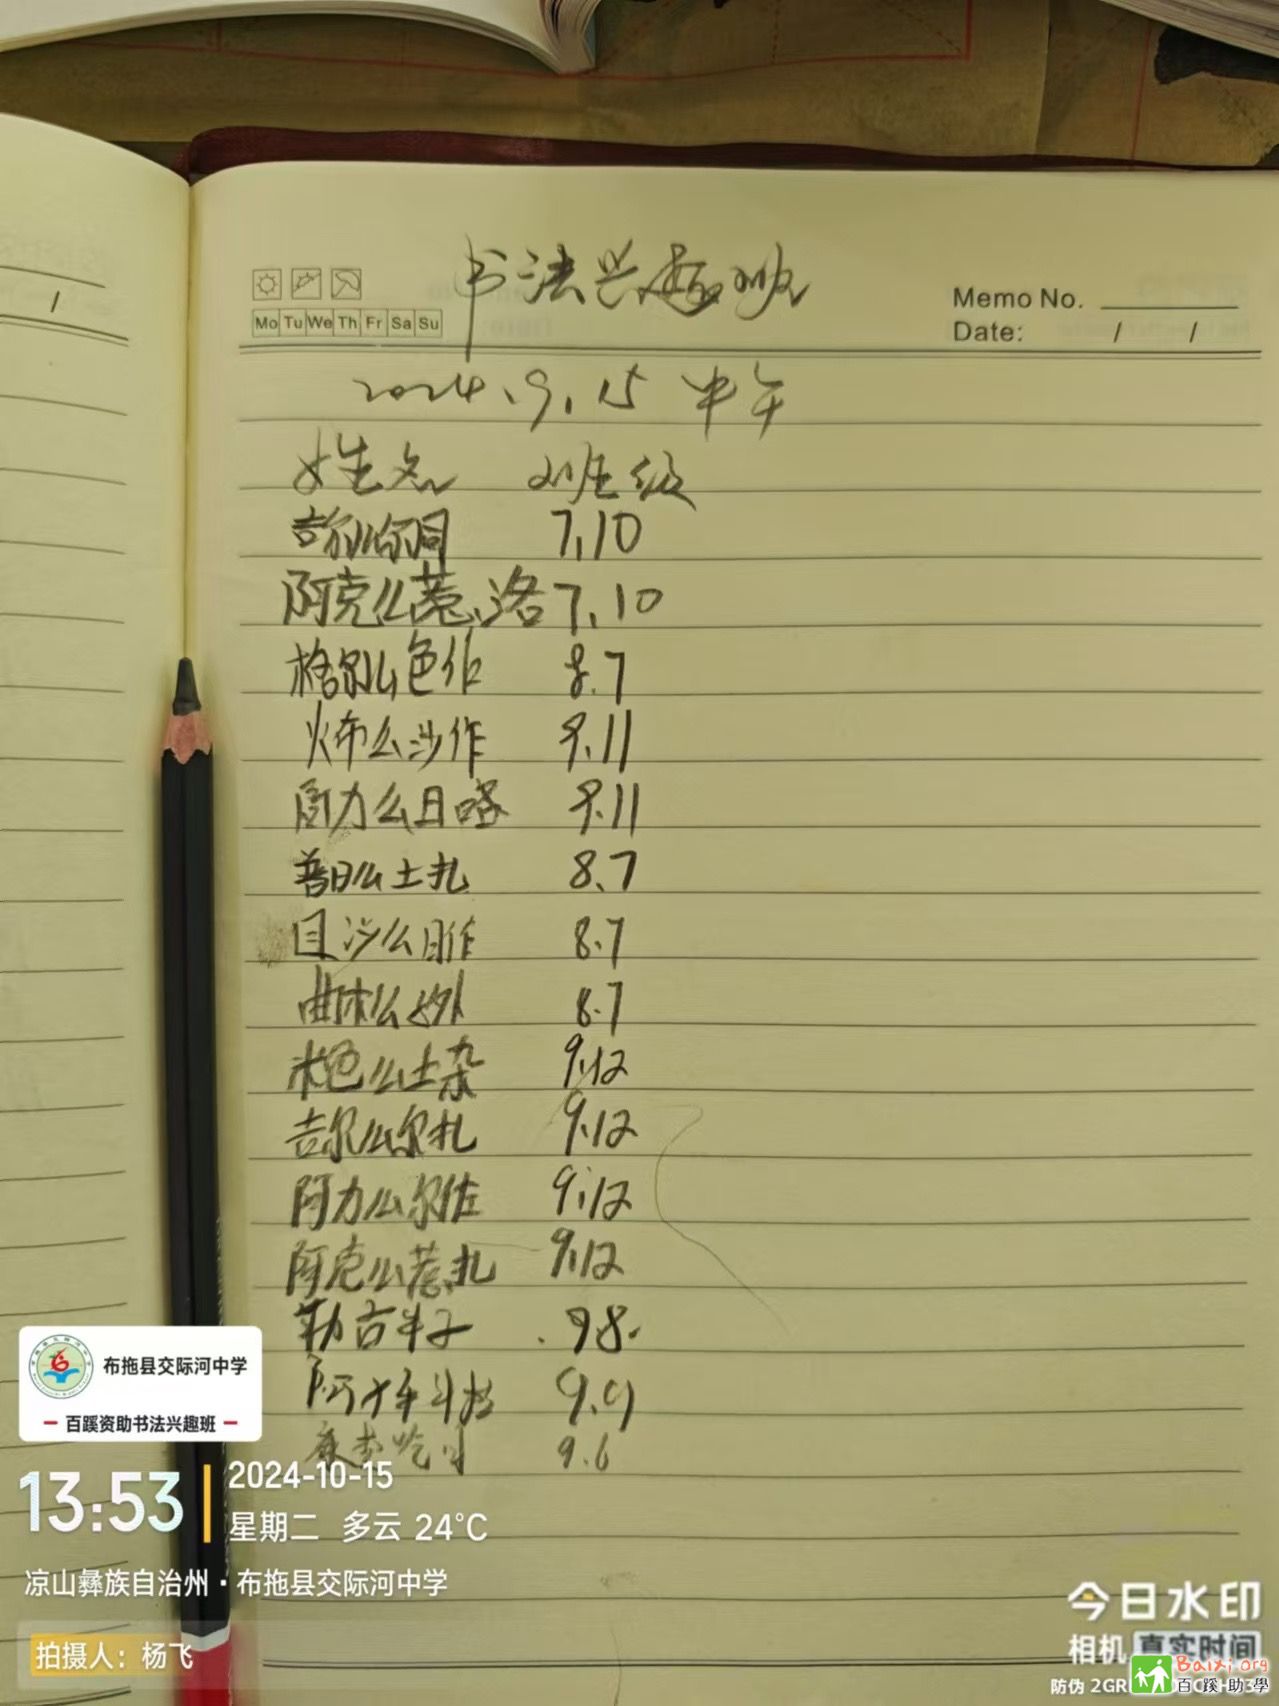 书法兴趣班
Mo Tu We Th Fr Sa Su
Memo No.
Date: / /
/
2024.9.15 中午
姓名 班级
7.10
阿克么惹洛 7.10
格尔么色作 8.7
火布么沙作 9.11
力么日 9.11
普日么土扎 8.7
目沙么日作 8.7
曲木么 8.7
米色么土杂 9.12
吉尔么尔扎 9.12
阿力么尔佐 9.12
阿克么惹扎 9.12
勒古半子 98.
9.9
9.6
布拖县交际河中学
百蹊资助书法兴趣班
13:53
2024-10-15
星期二 多云 24°C
凉山彝族自治州·布拖县交际河中学
拍摄人：杨飞
今日水印
相机 真实时间
防伪 2GR
Baixi.org
百蹊助學